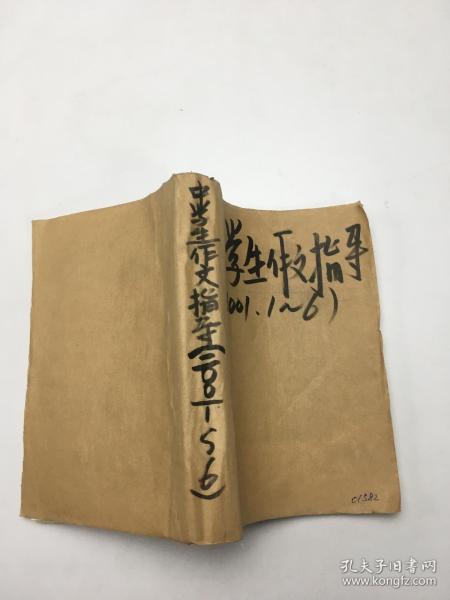 中学生作文指导(二00一~6)
学生作文指导
001.1~6)
01382
孔夫子旧书网
www.kongfz.com